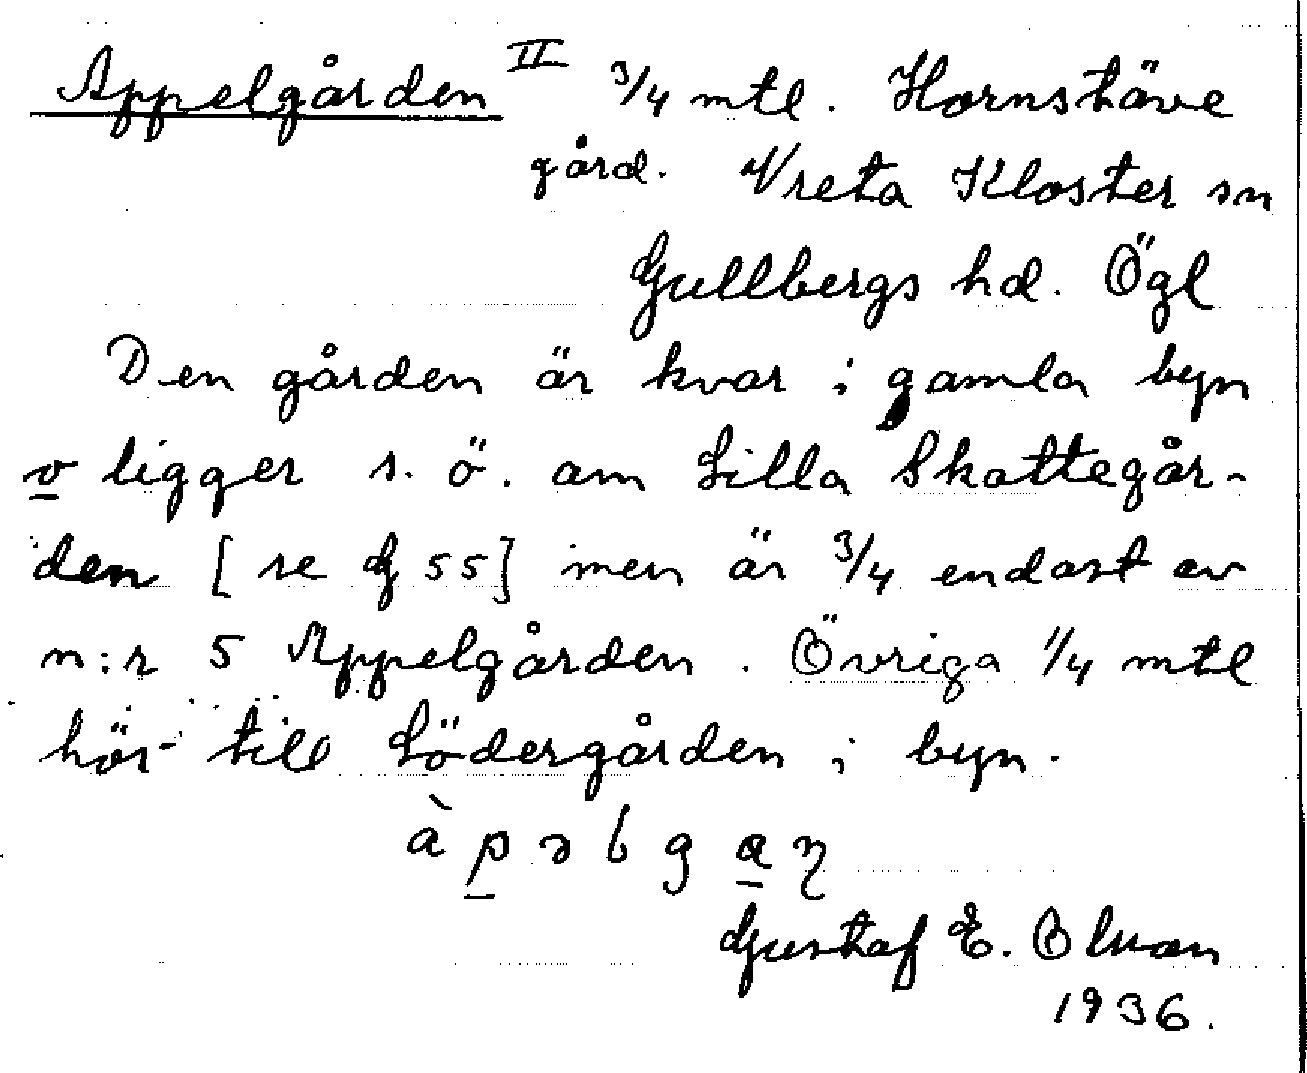 Appelgården II 3/4 mtl. Hornstäve
gård. Vreta Kloster sn
Gullbergs hd. Ögl
Den gården är kvar i gamla byn
o ligger s. ö. om Lilla Skattegår-
den [se G 55] men är 3/4 endast av
n:r 5 Appelgården. Övriga 1/4 mtl
hör till Södergården i byn.
Gustaf E.
1936.